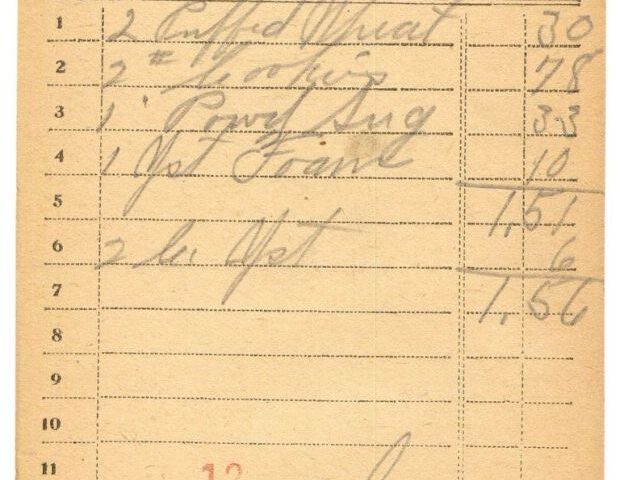 1 2 Puffed Wheat 30
2 2 # Cookies 78
3 1 Powd Sug 33
4 1 Yst Foam 10
5 1,51
6 2 Yst 6
7 1,56
8
9
10
11 12